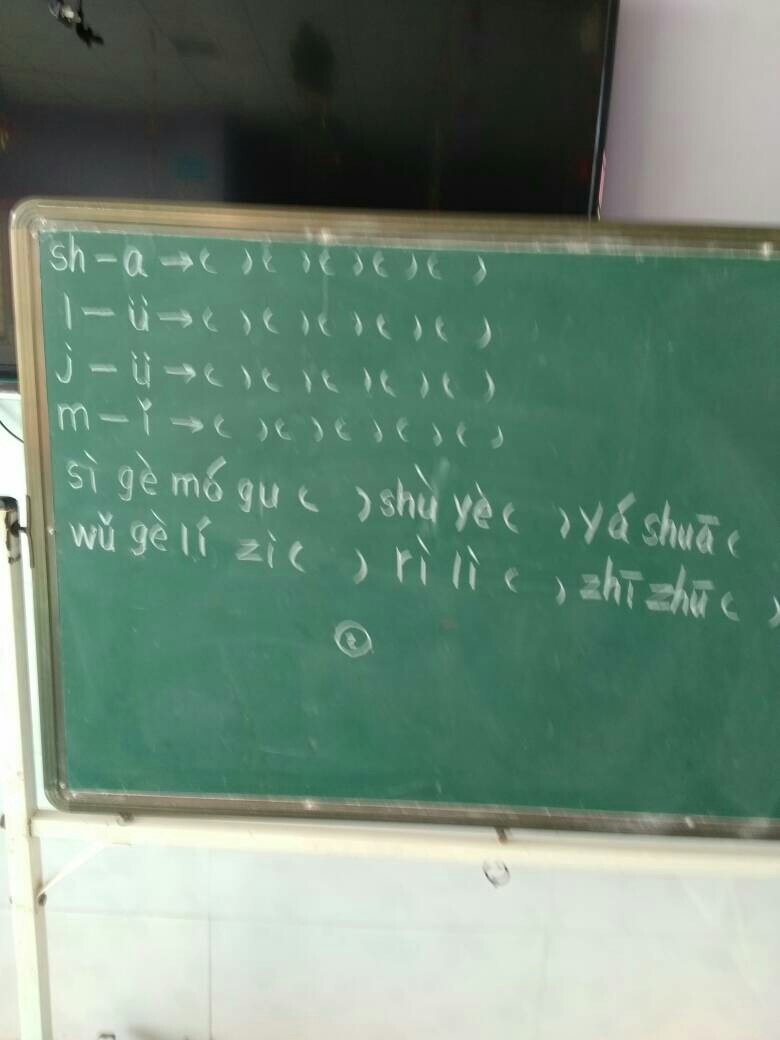 sh-a→( )( )( )( )( )
l-ü→( )( )( )( )( )
j-ü→( )( )( )( )( )
m-ǐ→( )( )( )( )( )
sì gè mó gu ( ) shù yè ( ) yá shuā (
wǔ gè lí zi ( ) rì lì ( ) zhī zhū ( )
②